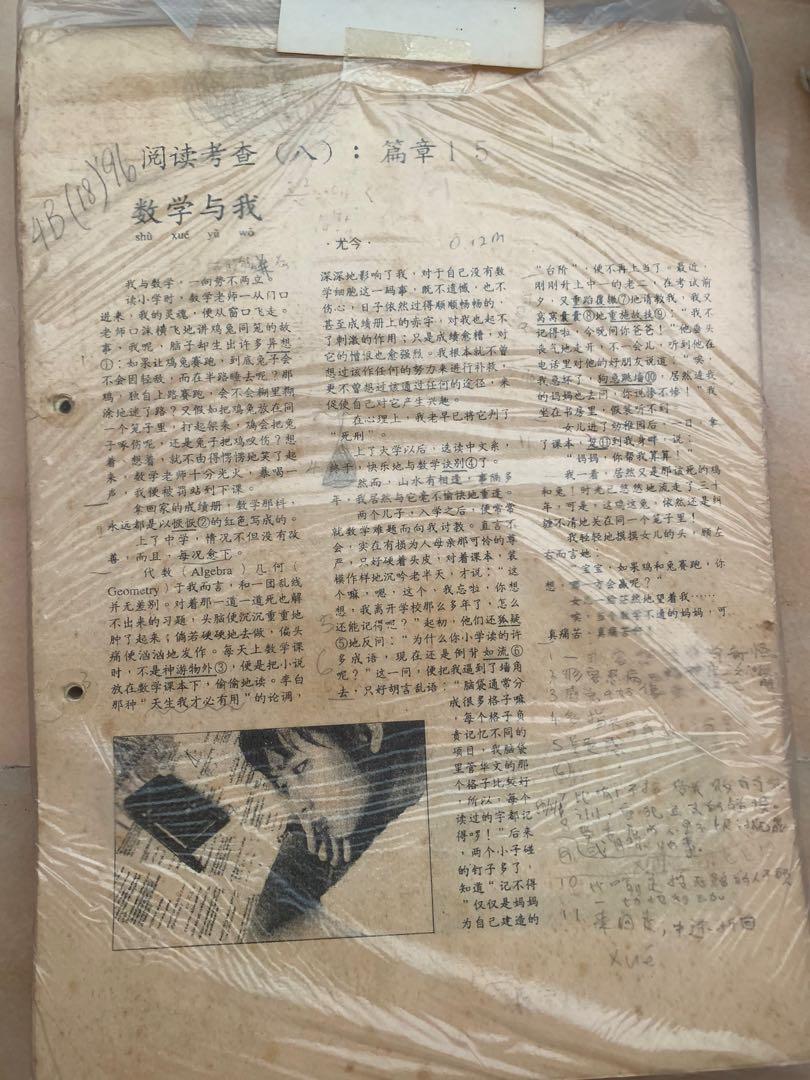 阅读考查(八):篇章15
4B(18)'96
数学与我
shù xué yǔ wǒ
·尤今·
0.12m
我与数学,一向势不两立。
读小学时,数学老师一从门口
进来,我的灵魂,便从窗口飞走。
老师口沫横飞地讲鸡兔同笼的故
事,我呢,脑子却生出许多异想
①:如果让鸡兔赛跑,到底兔子会
不会因轻敌,而在半路睡去呢?那
鸡,独自上路赛跑,会不会糊里糊
涂地迷了路?又假如把鸡兔放在同
一个笼子里,打起架来,鸡会把兔
子啄伤呢,还是兔子把鸡咬伤?想
着、想着,就不由得愣愣地笑了起
来,数学老师十分光火,暴喝一
声,我便被罚站到下课。
拿回家的成绩册,数学那科,
永远都是以恹恹②的红色写成的。
上了中学,情况不但没有改
善,而且,每况愈下。
代数(Algebra)几何(
Geometry)于我而言,和一团乱线
并无差别。对着那一道一道死也解
不出来的习题,头脑便沉沉重重地
肿了起来;倘若硬硬地去做,偏头
痛便汹汹地发作。每天上数学课
时,不是神游物外③,便是把小说
放在数学课本下,偷偷地读。李白
那种“天生我才必有用”的论调,
深深地影响了我,对于自己没有数
学细胞这一码事,既不遗憾,也不
伤心,日子依然过得顺顺畅畅的,
甚至成绩册上的赤字,对我也起不
了刺激的作用;只是成绩愈糟,对
它的憎恨也愈强烈。我根本就不曾
想过该作任何的努力来进行补救,
更不曾想过该通过任何的途径,来
促使自己对它产生兴趣。
在心理上,我老早已将它判了
“死刑”。
上了大学以后,选读中文系,
终于,快乐地与数学诀别④了。
然而,山水有相逢,事隔多
年,我居然与它毫不愉快地重逢。
两个儿子,入学之后,便常常
就数学难题而向我讨教。直言不
会,实在有损为人母亲那可怜的尊
严,只好硬着头皮,对着课本,装
模作样地沉吟老半天,才说:“这
个嘛,嗯,这个,我忘啦,你想
想,我离开学校那么多年了,怎么
还能记得呢?”起初,他们还狐疑
⑤地反问:“为什么你小学读的许
多成语,现在还是倒背如流⑥
呢?”这一问,便把我逼到了墙角
去,只好胡言乱语:“脑袋通常分
成很多格子嘛
,每个格子负
责记忆不同的
项目,我脑袋
里管华文的那
个格子比较好
,所以,每个
读过的字都记
得哆!”后来
,两个小子碰
的钉子多了,
知道“记不得
”仅仅是妈妈
为自己建造的
“台阶”,便不再上当了。最近,
刚刚升上中一的老二,在考试前
夕,又重蹈覆辙⑦地请教我,我又
窝窝囊囊⑧地重施故技⑨:“我不
记得啦,今晚问你爸爸!”他垂头
丧气地走开,不一会儿,听到他在
电话里对他的好朋友说道:“唉,
我急坏了,狗急跳墙⑩,居然连我
的妈妈也去问,你说惨不惨!”我
坐在书房里,假装听不到
女儿进了幼稚园后,一日,拿
了课本,⑪到我身畔,说:
“妈妈,你帮我算算!”
我一看,居然又是那该死的鸡
和兔!时光已悠悠地流走了三十
年,可是,这鸡这兔,依然还是纠
缠不清地关在同一个笼子里!
我轻轻地摸摸女儿的头,顾左
右而言他:
“宝宝,如果鸡和兔赛跑,你
想,哪一方会赢呢?”
女儿一脸茫然地望着我……
唉,当个数学不通的妈妈,可
真痛苦,真痛苦
xué